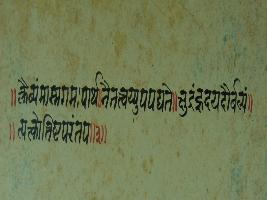 ॥क्लैब्यंमास्मगमःपार्थनैतत्त्वय्युपपद्यते॥क्षुद्रंहृदयदौर्बल्यं
॥त्यक्त्वोत्तिष्टपरंतप॥३॥